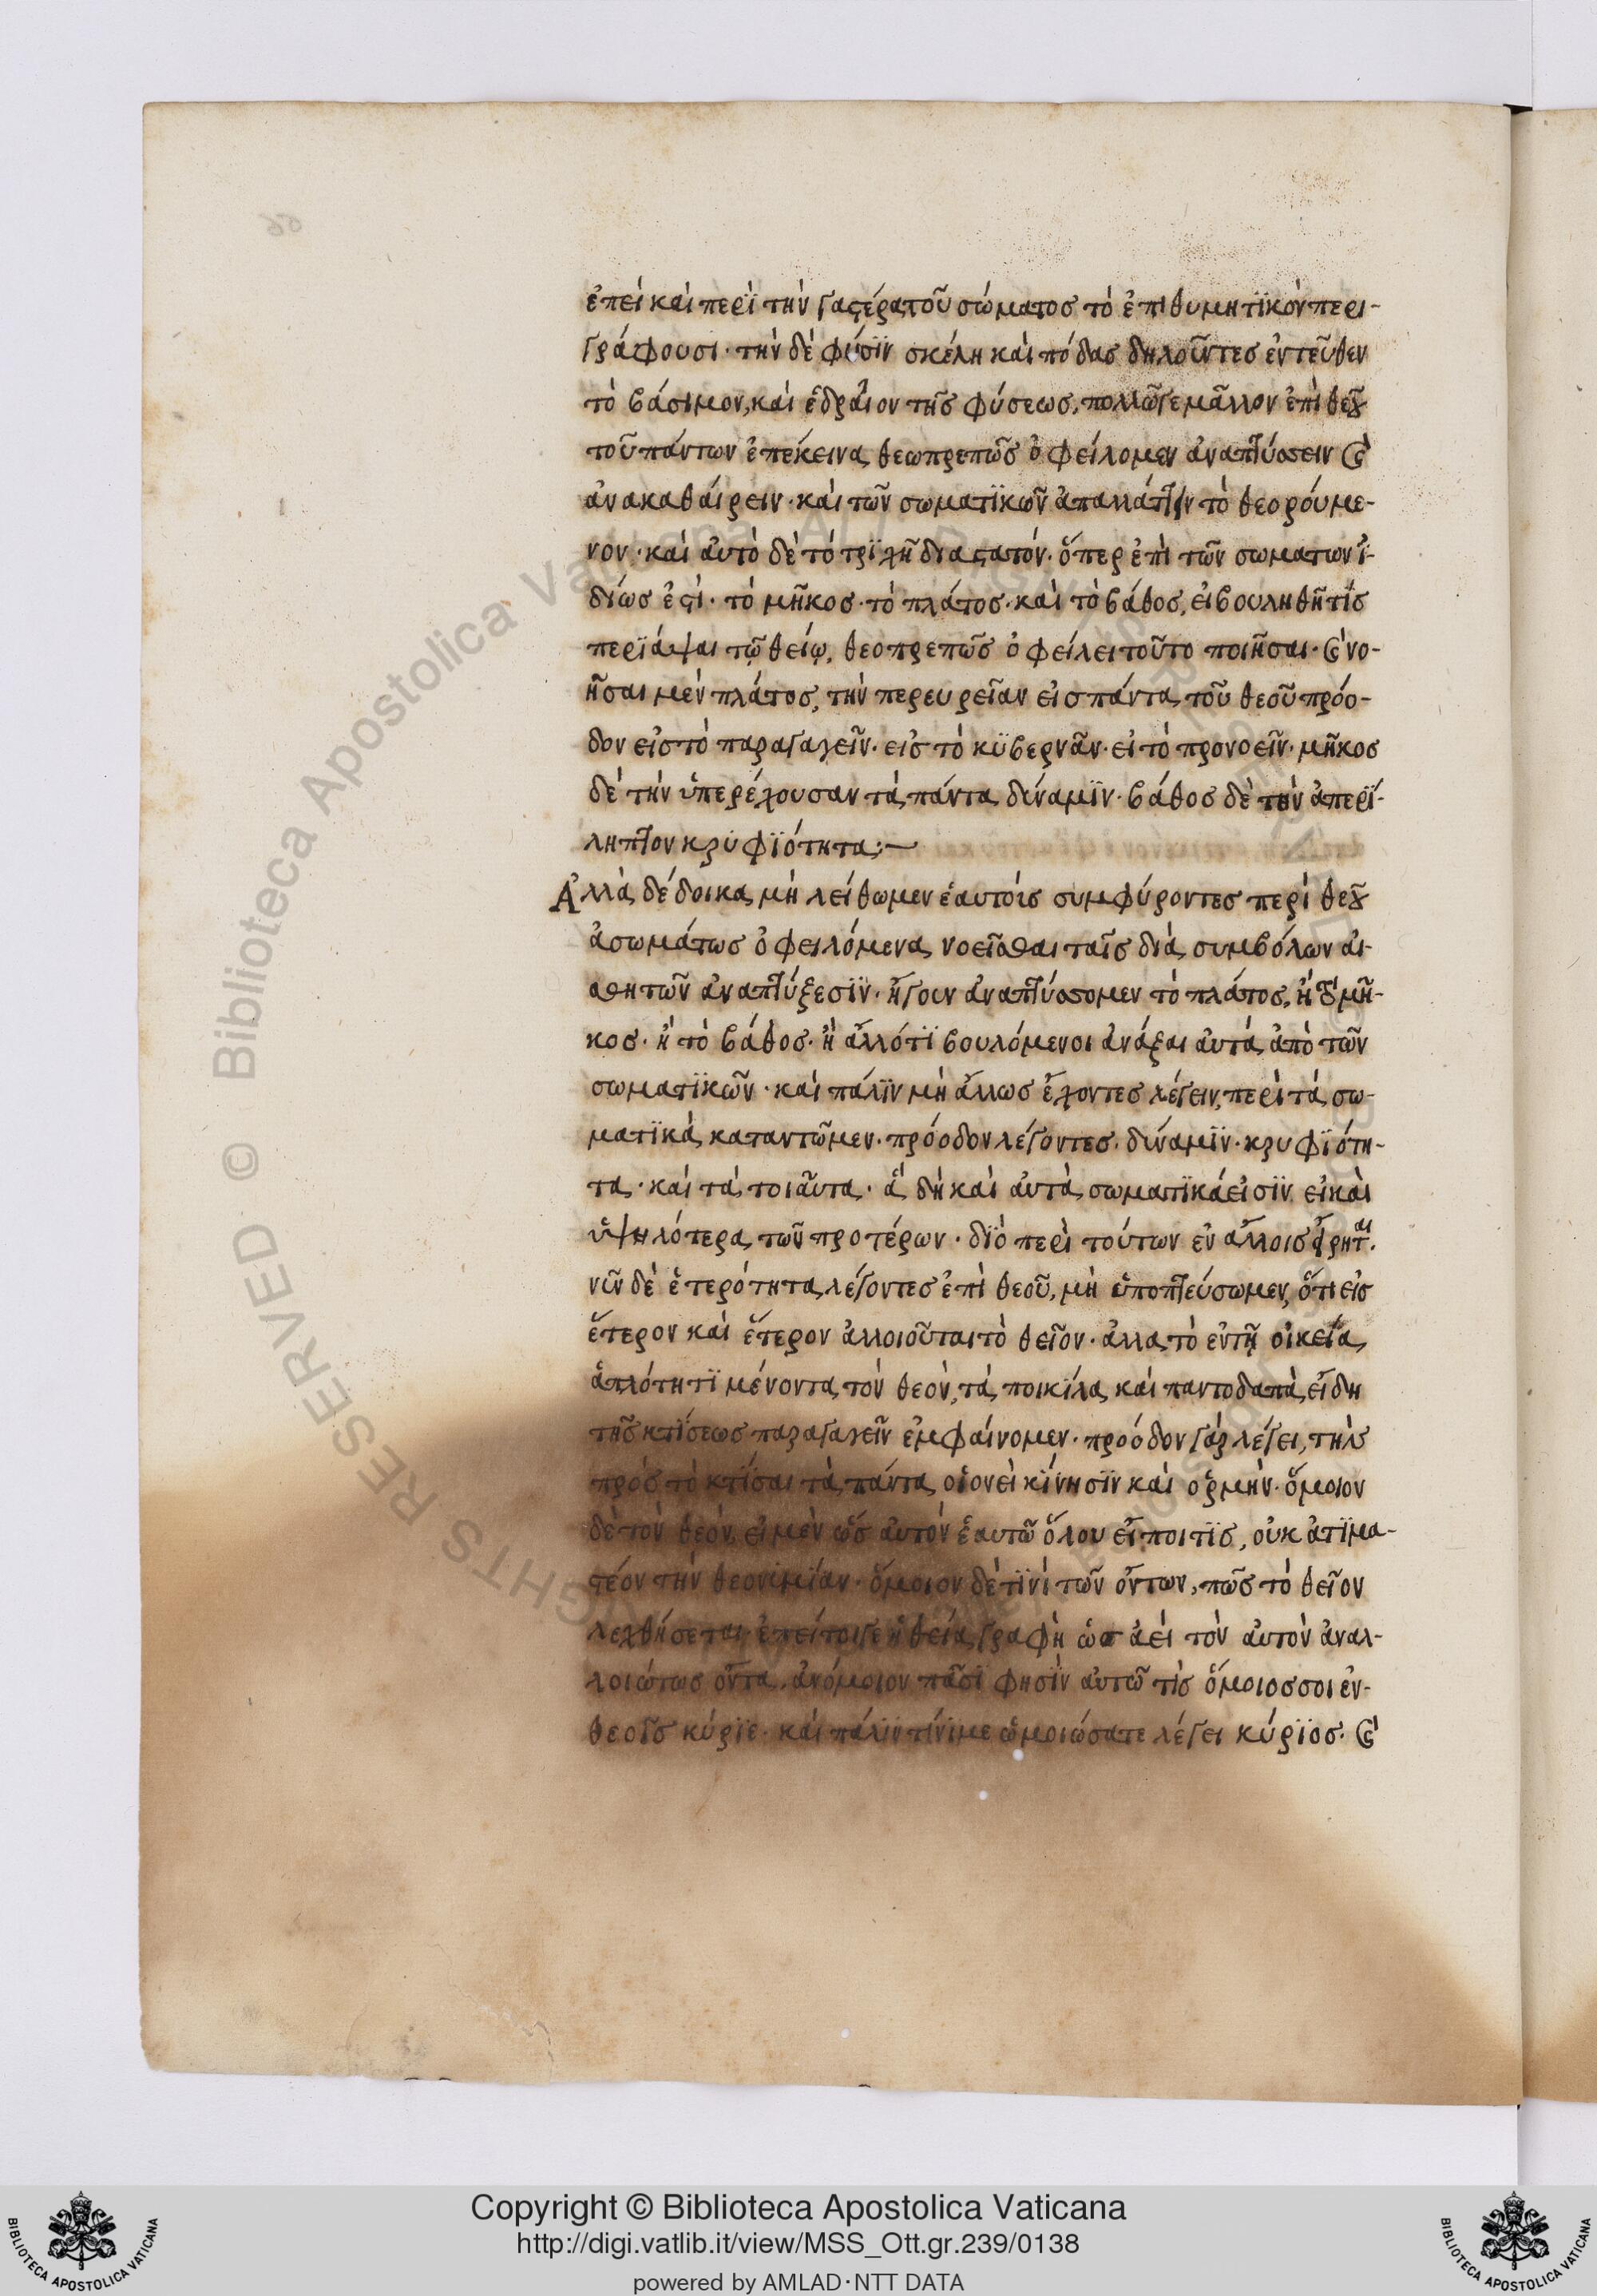 ἐπεὶ καὶ περὶ τὴν γαστέρα τοῦ σώματος τὸ ἐπιθυμητϊκὸν περι-
γράφουσι· τὴν δὲ φύσϊν σκέλη καὶ πόδας δηλοῦντες ἐντεῦθεν
τὸ βάσιμον, καὶ ἑδραῖον τῆς φύσεως, πολλῶ γε μᾶλλον ἐπὶ θεοῦ
τοῦ πάντων ἐπέκεινα θεωπρεπῶς ὀφείλομεν ἀναπτύσσειν καὶ
ἀνακαθαίρειν· καὶ τῶν σωματϊκῶν ἀπαλλάττειν τὸ θεορούμε-
νον· καὶ αὐτὸ δὲ τὸ τρϊχῆ διαστατόν· ὅπερ ἐπὶ τῶν σωματων ἰ-
δίως ἐστί· τὸ μῆκος· τὸ πλάτος· καὶ τὸ βάθος, εἰ βουληθῆ τίς
περϊάψαι τῷ θείῳ, θεοπρεπῶς ὀφείλει τοῦτο ποιῆσαι· καὶ νο-
ῆσαι μὲν πλάτος, τὴν περευρεῖαν εἰς πάντα τοῦ θεοῦ πρόο-
δον εἰς τὸ παραγαγεῖν· εἰς τὸ κϋβερνᾶν· εἰ τὸ προνοεῖν· μῆκος
δὲ τὴν ὑπερέχουσαν τὰ πάντα δύναμϊν· βάθος δὲ τὴν ἀπερϊ-
ληπτον κρυφϊότητα:—
Ἀλλὰ δέδοικα μὴ λείθωμεν ἑαυτοὶς συμφύροντες περὶ θεοῦ
ἀσωμάτως ὀφειλόμενα νοεῖσθαι ταῖς διὰ συμβόλων αἰ-
σθητῶν ἀναπτύξεσϊν· ἤγουν ἀναπτύσσομεν τὸ πλάτος, ἢ τὸ μῆ-
κος· ἢ τὸ βάθος· ἢ ἄλλό τϊ βουλόμενοι ἀνάξαι αὐτὰ ἀπὸ τῶν
σωματϊκῶν· καὶ πάλϊν μὴ ἄλλως ἔχοντες λέγειν, περὶ τὰ σω-
ματϊκὰ καταντῶμεν· πρόοδον λέγοντες· δύναμϊν· κρυφϊότη-
τα· καὶ τὰ τοιαῦτα· ἃ δὴ καὶ αὐτὰ σωματϊκά εἰσϊν εἰ καὶ
ὑψηλότερα τῶν προτέρων· δϊὸ περὶ τούτων ἐν ἄλλοις εἴρηται·
νῦν δὲ ἑτερότητα λέγοντες ἐπὶ θεοῦ, μὴ ὑποπτεύσωμεν, ὅτι εἰς
ἕτερον καὶ ἕτερον ἀλλοιοῦται τὸ θεῖον· ἀλλα τὸ ἐν τῇ οἰκεία
ἁπλότητϊ μένοντα τὸν θεὸν, τὰ ποικίλα καὶ παντοδαπὰ εἴδη
τῆς κτίσεως παραγαγεῖν ἐμφαίνομεν· προόδον γὰρ λέγει, τὴν
πρὸς τὸ κτίσαι τὰ πάντα οἱονεὶ κίνησϊν καὶ ὁρμήν· ὅμοιον
δὲ τὸν θεὸν, εἰ μὲν ὡς αὐτὸν ἑαυτῶ ὅλου εἴποι τϊς, οὐκ ἀτϊμα-
στέον τὴν θεονϋμϊαν· ὅμοιον δὲ τϊνὶ τῶν ὄντων, πῶς τὸ θεῖον
λεχθήσεται· ἐπεί τοι γε ἡ θεία γραφὴ ὡς ἀεὶ τὸν αὐτὸν ἀναλ-
λοιώτως ὄντα, ἀνόμοιον πᾶσϊ φησὶν αὐτῶ τὶς ὅμοιος σοι ἐν-
θεοῖς κύρϊε· καὶ πάλϊν τίνϊ με ὡμοιώσατε λέγει κύρϊος· καὶ
Copyright © Biblioteca Apostolica Vaticana
http://digi.vatlib.it/view/MSS_Ott.gr.239/0138
powered by AMLAD·NTT DATA